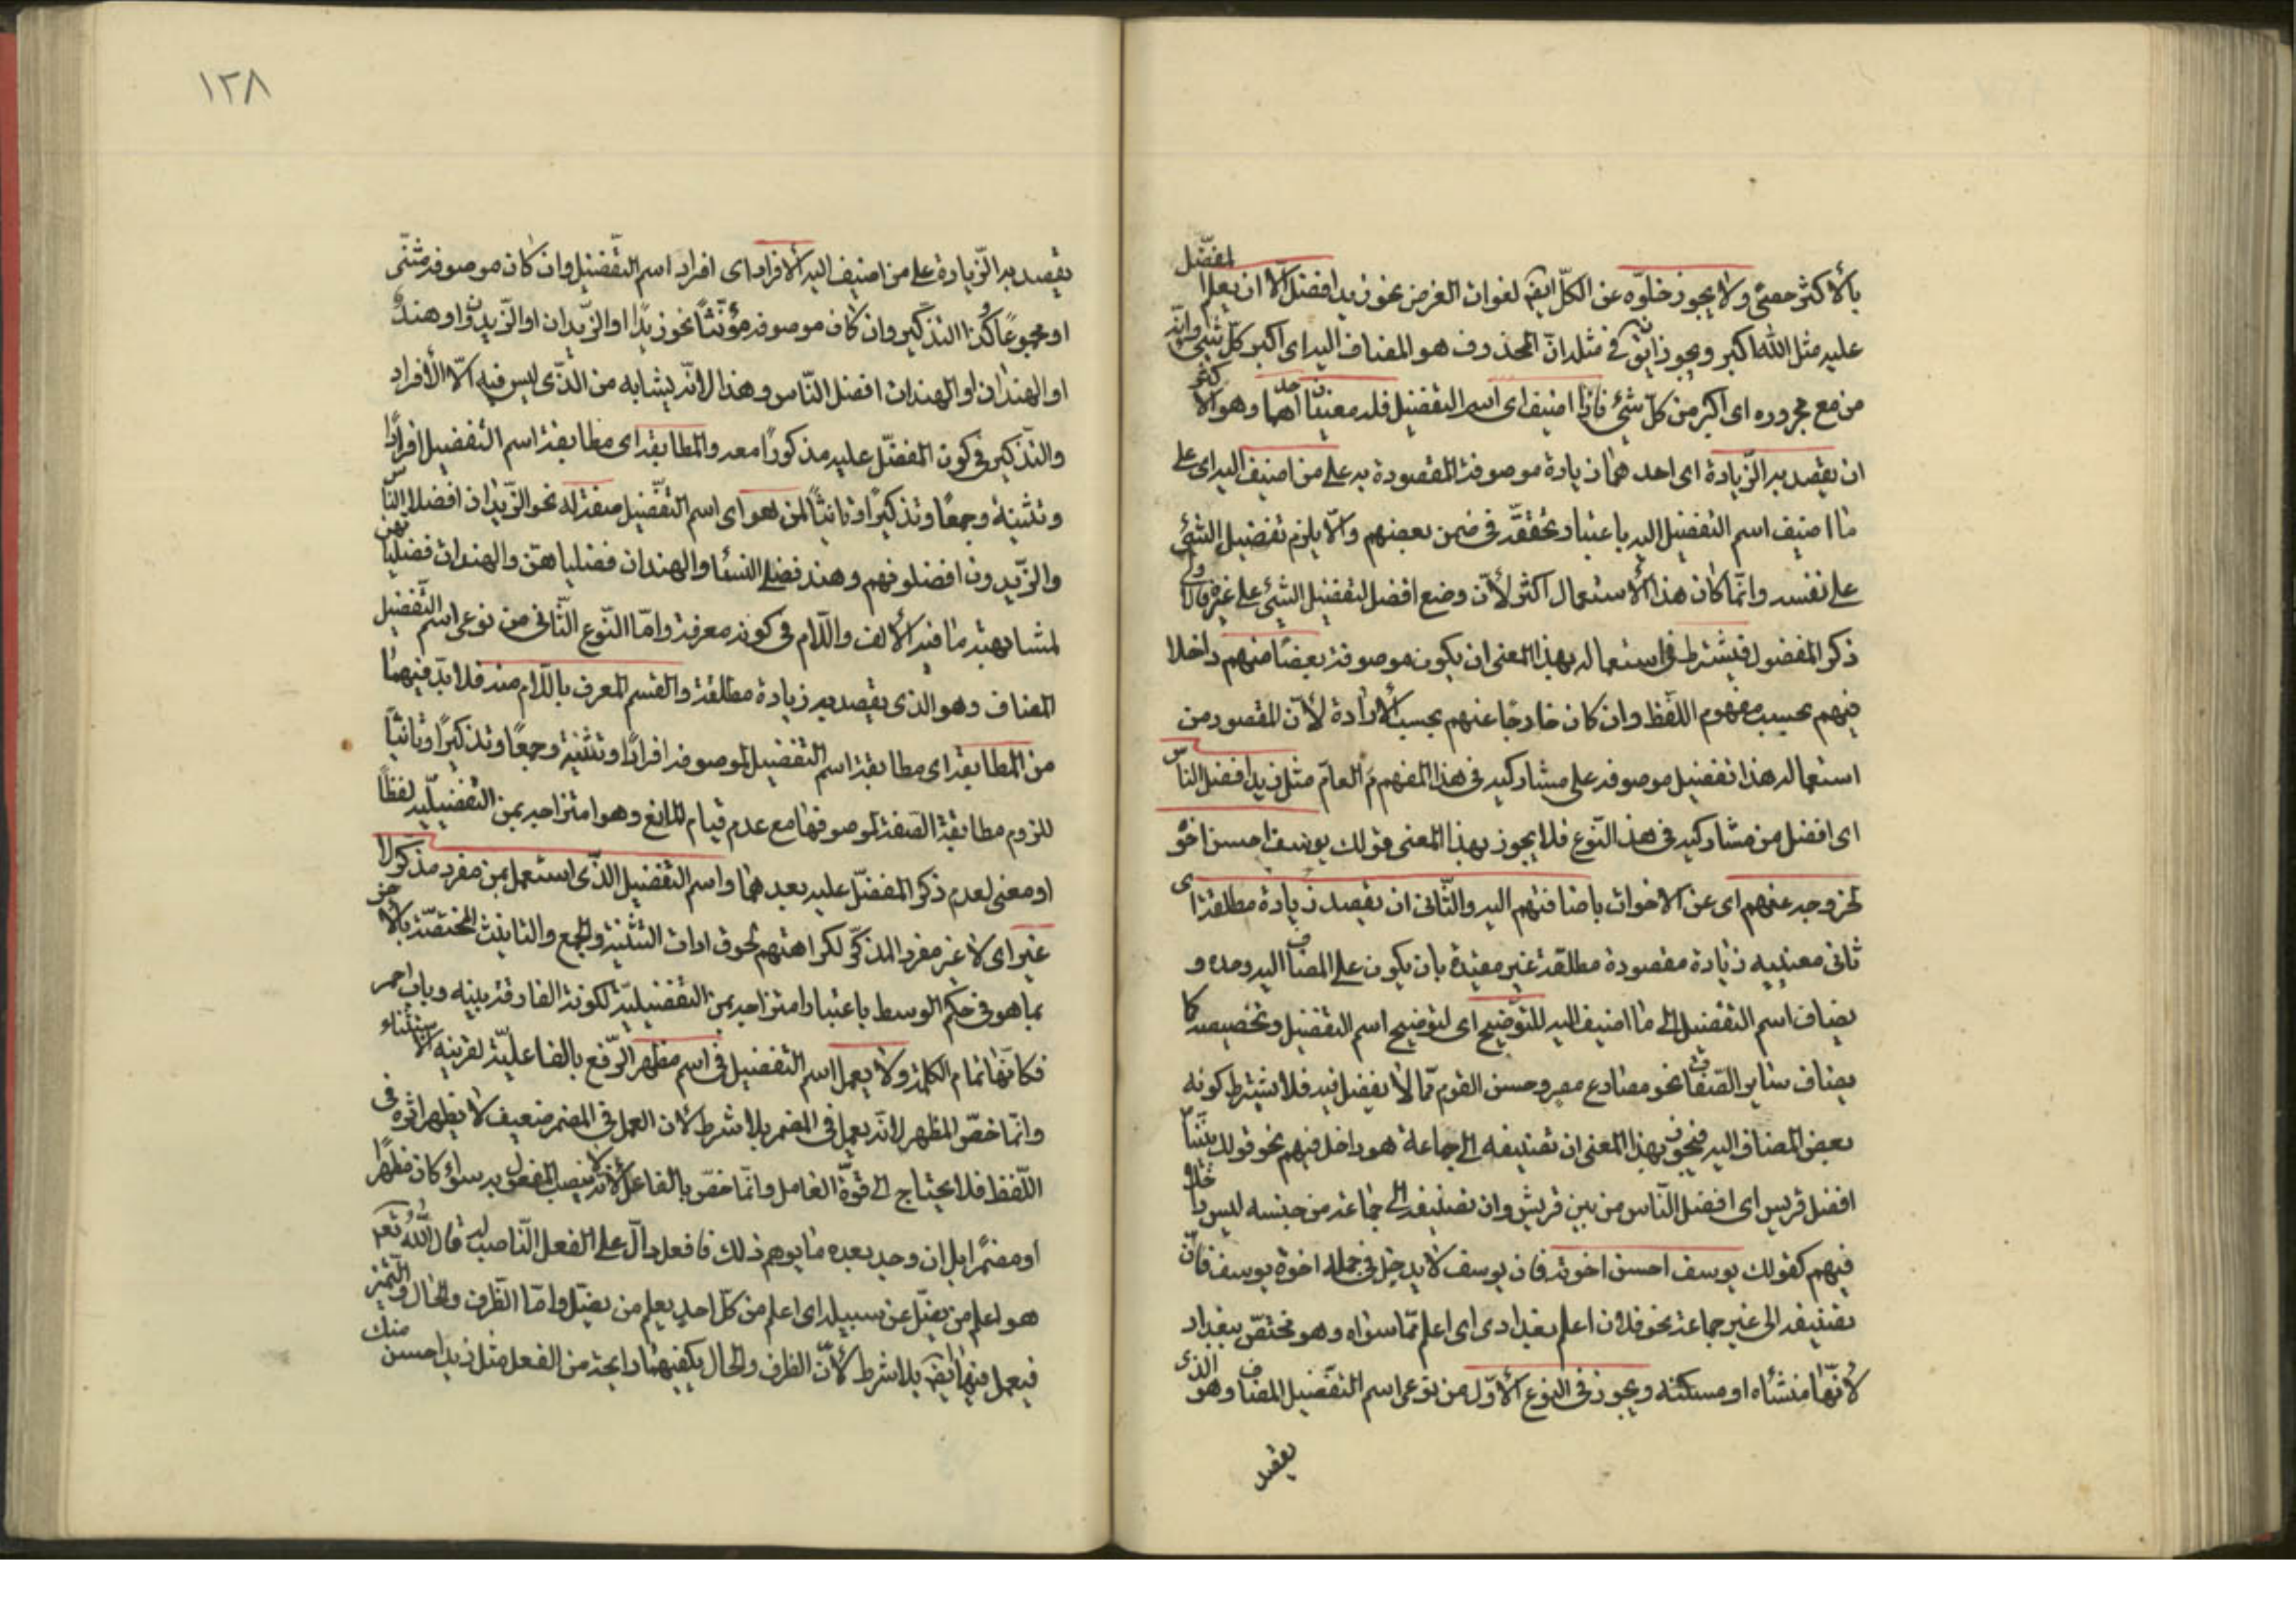 بالأكثر معنى ولا يجوز خلوّه عن الكلّ ايضا لفوات الغرض نحو زيد افضل الّا ان يعلم المفضّل
عليه مثل الله اكبر ويجوز ان يق في مثله انّ المحذوف هو المضاف اليه اى اكبر كلّ شئ وانّه
من مع مجروره اى اكبر من كلّ شئ فاذا اضيف اى اسم التفضيل فله معنيان احدهما وهو الاكثر
ان يقصد به الزّيادة اى احدهما زيادة موصوفه المقصودة به على من اضيف اليه اى على
ما اضيف اسم التفضيل اليه باعتبار تحققه في ضمن بعضهم والّا يلزم تفضيل الشئ
على نفسه وانّما كان هذا الاستعمال اكثر لأنّ وضع افضل لتفضيل الشئ على غيره فالاولى
ذكر المفضول فيشترط في استعماله بهذا المعنى ان يكون موصوفه بعضا منهم داخلا
فيهم بحسب مفهوم اللّفظ وان كان خارجا عنهم بحسب الأرادة لأنّ المقصود من
استعماله هذا تفضيل موصوفه على مشاركيه في هذا المفهوم العامّ مثل زيد افضل الناس
اى افضل من مشاركيه في هذا النّوع فلا يجوز بهذا المعنى قولك يوسف احسن اخوته
لخروجه عنهم اى عن الاخوات باضافتهم اليه والثّانى ان يقصد زيادة مطلقة اى
ثانى معنييه زيادة مقصودة مطلقة غير مقيّدة بان يكون على المضاف اليه وحده و
يضاف اسم التفضيل الى ما اضيف اليه للتّوضيح اى لتوضيح اسم التفضيل وتخصيصه كما
يضاف ساير الصّفات نحو مصارع مصر وحسن القوم ممّا لا تفضيل فيه فلا يشترط كونه
بعض المضاف اليه فيجوز بهذا المعنى ان تضيفه الى جماعة هو داخل فيهم نحو قولك نبيّنا
افضل قريش اى افضل النّاس من بين قريش وان تضيفه الى جماعة من جنسه ليس داخلا
فيهم كقولك يوسف احسن اخوته فان يوسف لا يدخل في جملة اخوة يوسف فانّ
تضيفه الى غير جماعة نحو فلان اعلم بغداد اى اعلم ممّا سواه وهو مختصّ ببغداد
لأنّها منشأه او مسكنه ويجوز في النوع الأوّل من نوعى اسم التفضيل المضاف وهو الذى
يقصد
١٢٨
يقصد به الزّيادة على من اضيف اليه الأفراد اى افراد اسم التّفضيل وان كان موصوفه مثنّى
او مجموعا وكذا التذكير وان كان موصوفه مؤنّثا نحو زيد او الزّيدان او الزّيدون او هند
او الهندان او الهندات افضل النّاس وهذا لانّه يشابه من الذّى ليس فيه الّا الأفراد
والتّذكير في كون المفضّل عليه مذكورا معه والمطابقة اى مطابقة اسم التفضيل افرادا
وتثنية وجمعا وتذكيرا وتانيثا لمن هو اى اسم التّفضيل صفة له نحو الزّيدان افضلا النّاس
والزّيدون افضلوهم وهند فضلى النساء والهندان فضلياهنّ والهندات فضلياتهنّ
لمشابهته ما فيه الألف واللّام في كونه معرفة وامّا النّوع الثّانى من نوعى اسم التّفضيل
المضاف وهو الذى يقصد به زيادة مطلقة والقسم المعرف باللّام منه فلا بدّ فيهما
من المطابقة اى مطابقة اسم التفضيل لموصوفه افرادا وتثنية وجمعا وتذكيرا وتانيثا
للزوم مطابقة الصّفة لموصوفها مع عدم قيام المانع وهو امتزاجه بمن التّفضيليّة لفظا
او معنى لعدم ذكر المفضّل عليه بعدهما واسم التفضيل الذّى استعمل بمن مفرد مذكّر لا
غير اى لا غير مفرد المذكّر لكراهتهم لحوق ادات التثنية والجمع والتانيث المختصّة بالاخر
بما هو في حكم الوسط باعتبار امتزاجه بمن التفضيليّة لكونه الفارقة بينه وباب احمر
فكأنّها تمام الكلمة ولا يعمل اسم التفضيل في اسم مظهر الرّفع بالفاعليّة لقرينه الاستثناء
وانّما خصّ المظهر لانّه يعمل في المضمر بلا شرط لان العمل في المضمر ضعيف لا يظهر اثره في
اللّفظ فلا يحتاج الى قوّة العامل وانّما خصّ بالفاعل لأنّه لا ينصب المفعول به سواء كان مظهرا
او مضمرا بل ان وجد بعده ما يوهم ذلك فافعل دالّ على الفعل النّاصب له قال الله تعم
هو اعلم من يضلّ عن سبيله اى اعلم من كلّ احد يعلم من يضلّ وامّا الظّرف والحال والتميز
فيعمل فيها ايضا بلا شرط لأنّ الظرف والحال يكفيهما رايحة من الفعل مثل زيد احسن منك